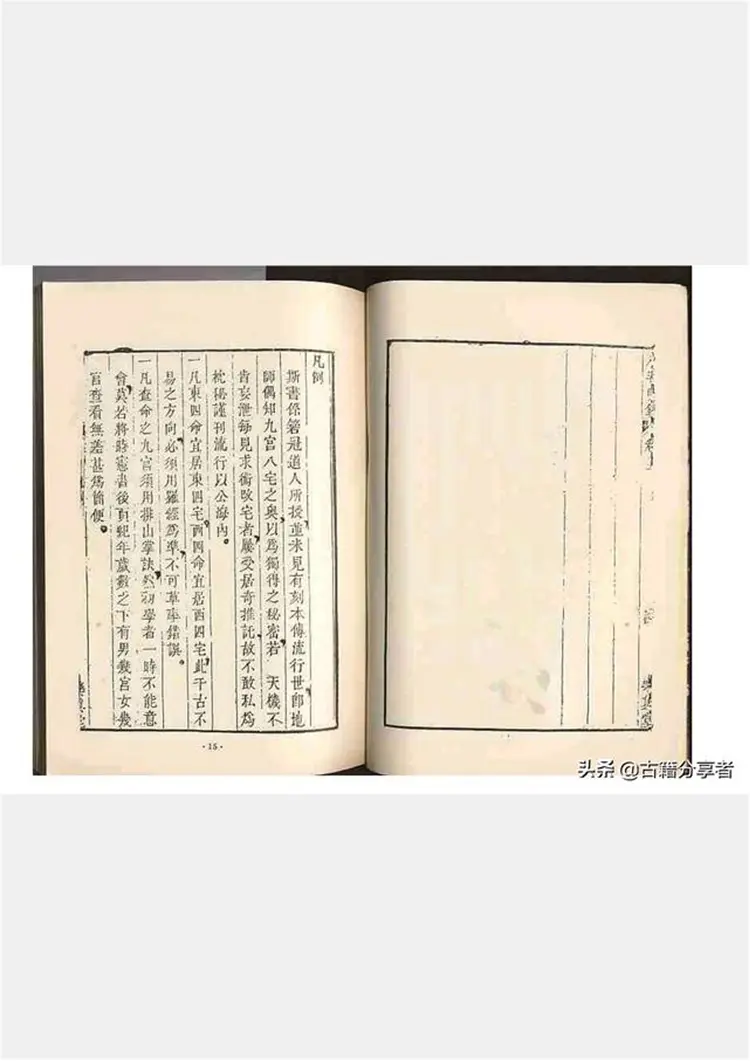 凡例
斯書係箬冠道人所授、並未見有刻本傳流行世、卽地
師偶知九宮八宅之奧、以爲獨得之秘密、若 天機不
肯妄泄、每見求術改宅者、屢受居奇推託、故不敢私爲
枕秘、謹刊流行以公海內。
一凡東四命宜居東四宅、西四命宜居西四宅、此千古不
易之方向、必須用羅經爲準、不可草率錯誤。
一凡查命之九宮須用排山掌訣、然初學者一時不能意
會、莫若將時憲書後頁紀年歲數之下有男幾宮女幾
宮查看無差甚爲簡便。
·15·
头条 @古籍分享者